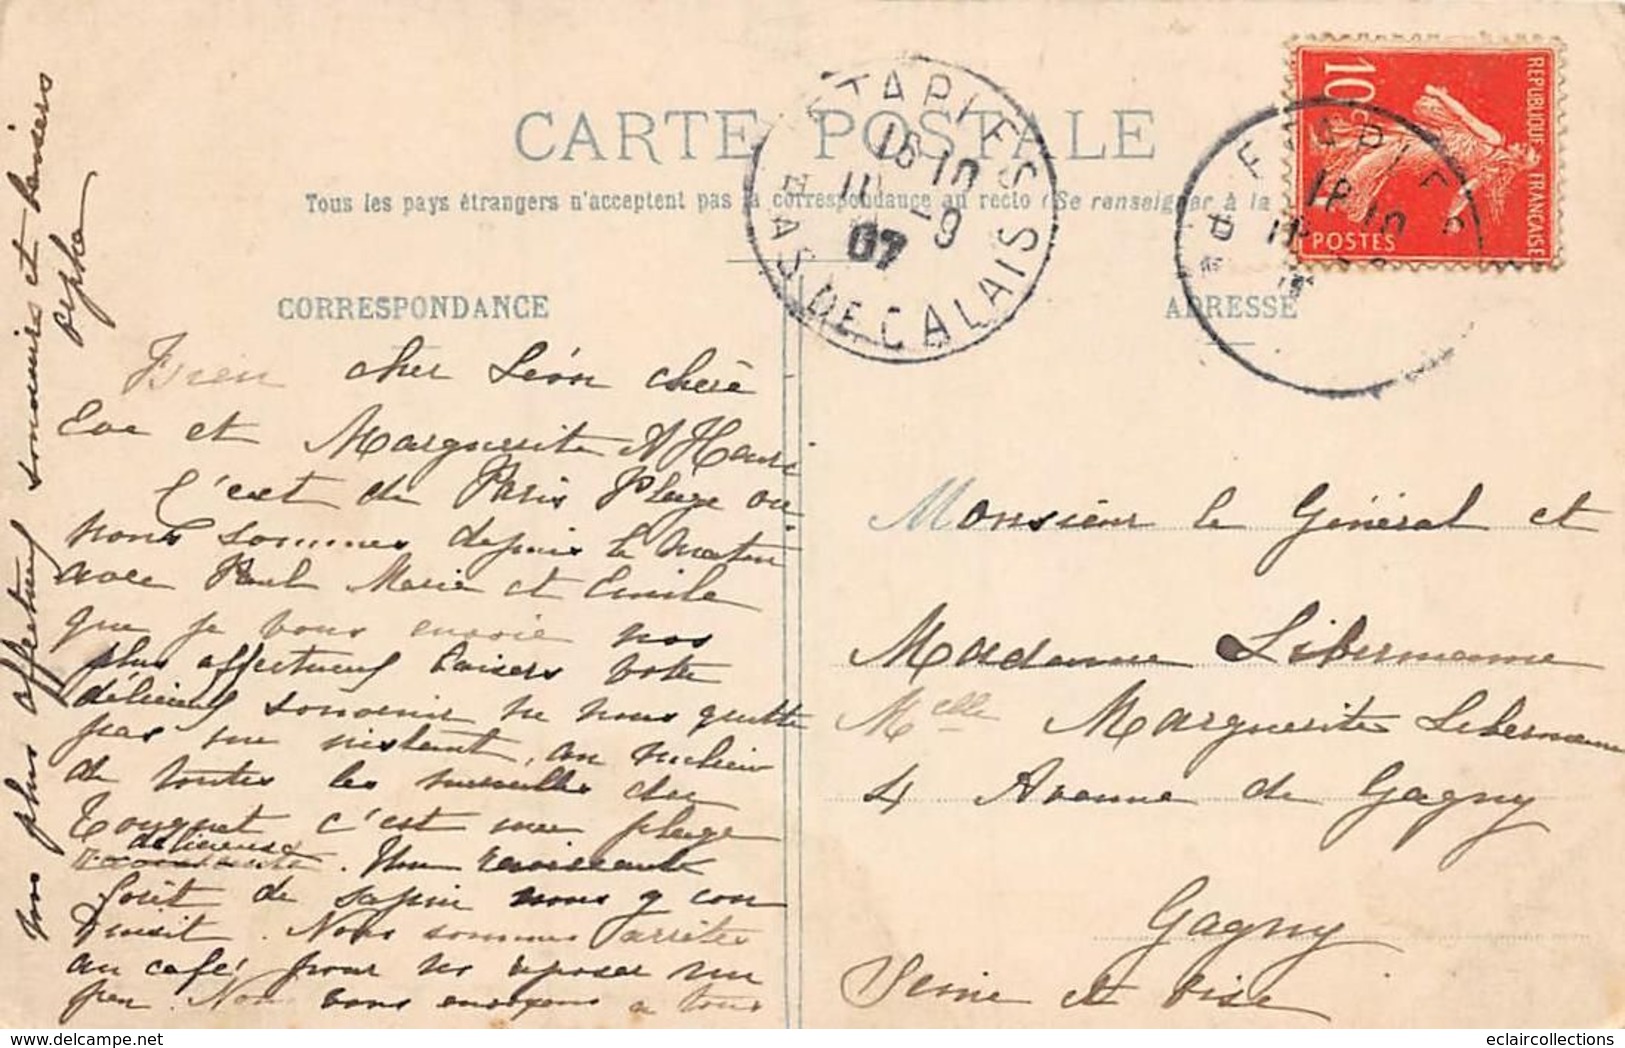 CARTE POSTALE
Tous les pays étrangers n'acceptent pas la correspondance au recto (Se renseigner à la
CORRESPONDANCE
ADRESSE
REPUBLIQUE FRANÇAISE
10c
POSTES
ETAPLES
16 10
-9
07
PAS DE CALAIS
Bien cher Léon chère
Eve et Marguerite
C'est de Paris Plage où
nous sommes depuis le matin
avec Paul Marie et Emile
que je vous envoie nos
plus affectueux baisers votre
délicieux souvenir ne nous quitte
pas un instant, au milieu
de toutes les merveilles du
Touquet c'est une plage
délicieuse
. Une ravissante
forêt de sapin nous y con
duisit. Nous sommes arrêtés
au café pour se reposer un
peu. Nous vous envoyons a tous
nos plus affectueux souvenirs et baisers
Monsieur le Général et
Madame Libermanne
Melle Marguerite Libermanne
4 Avenue de Gagny
Gagny
Seine et Oise
eclaircollections
delcampe.net